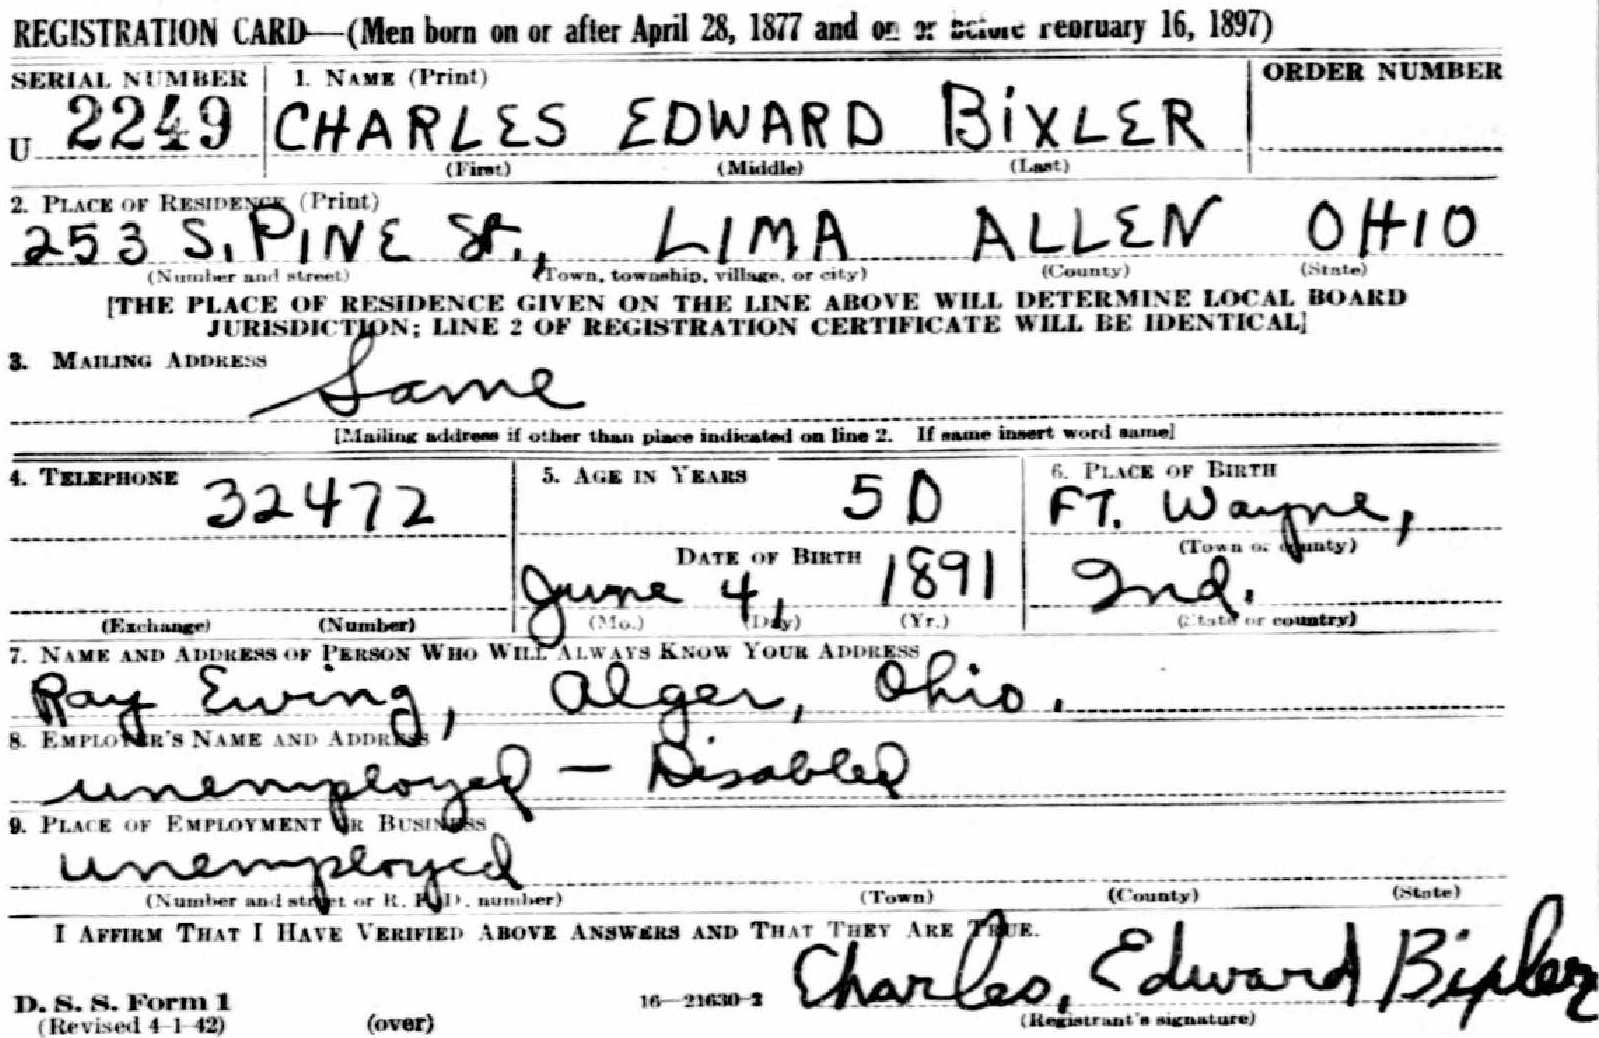 REGISTRATION CARD—(Men born on or after April 28, 1877 and on or before February 16, 1897)
SERIAL NUMBER 1. NAME (Print) ORDER NUMBER
U 2249 CHARLES EDWARD BIXLER
(First) (Middle) (Last)
2. PLACE OF RESIDENCE (Print)
253 S. PINE St., LIMA ALLEN OHIO
(Number and street) (Town, township, village, or city) (County) (State)
[THE PLACE OF RESIDENCE GIVEN ON THE LINE ABOVE WILL DETERMINE LOCAL BOARD
JURISDICTION; LINE 2 OF REGISTRATION CERTIFICATE WILL BE IDENTICAL]
3. MAILING ADDRESS
Same
[Mailing address if other than place indicated on line 2. If same insert word same]
4. TELEPHONE 5. AGE IN YEARS 6. PLACE OF BIRTH
32472 50 FT. Wayne,
DATE OF BIRTH (Town or county)
June 4, 1891 Ind.
(Exchange) (Number) (Mo.) (Day) (Yr.) (State or country)
7. NAME AND ADDRESS OF PERSON WHO WILL ALWAYS KNOW YOUR ADDRESS
Ray Ewing, Alger, Ohio.
8. EMPLOYER'S NAME AND ADDRESS
unemployed — Disabled
9. PLACE OF EMPLOYMENT OR BUSINESS
unemployed
(Number and street or R. F. D. number) (Town) (County) (State)
I AFFIRM THAT I HAVE VERIFIED ABOVE ANSWERS AND THAT THEY ARE TRUE.
D. S. S. Form 1 16—21630-2 Charles, Edward Bixler
(Revised 4-1-42) (over) (Registrant's signature)